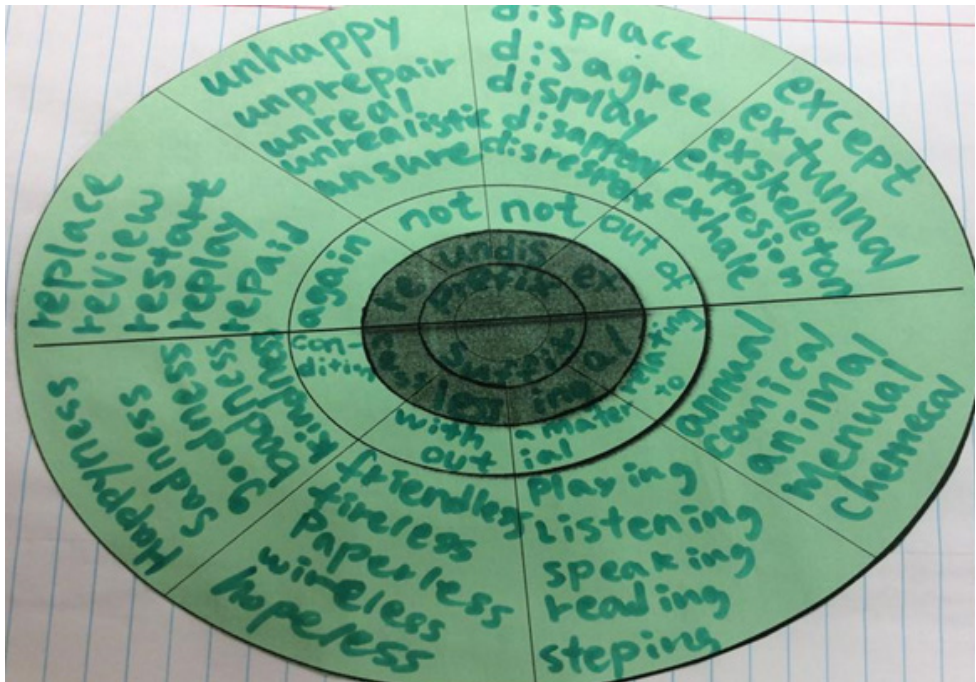 unhappy
unprepair
unreal
unrealistic
unshre
displace
disagree
display
disappear
disrespect
except
extunnal
exskeleton
explosion
exhale
replace
review
restate
replay
repaid
again
not
not
out of
re
un
dis
ex
prefix
suffix
ness
less
ing
al
con-
dition
with
out
a mater
ial
relating
to
annual
comical
animal
Menual
chemecal
playing
Listening
speaking
reading
steping
friendless
tireless
paperless
wireless
hopeless
kindness
badness
goodness
sadness
Happyness